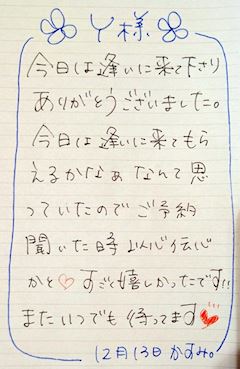 Y様
今日は逢いに来て下さり
ありがとうございました。
今日は逢いに来てもら
えるかなぁなんて思
っていたのでご予約
聞いた時以心伝心
かと♡すごく嬉しかったです!!
またいつでも待ってます♥
12月13日 かすみ。